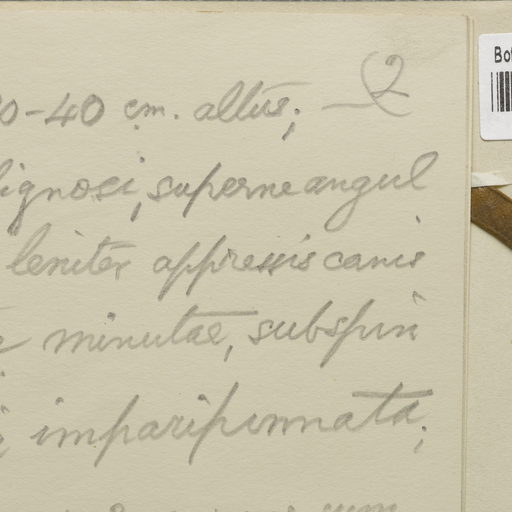 2
0-40 cm. altus; —
lignosi, superne angul
leniter appressis canis
minutae, subspin
imparipinnata;
cum
Bot